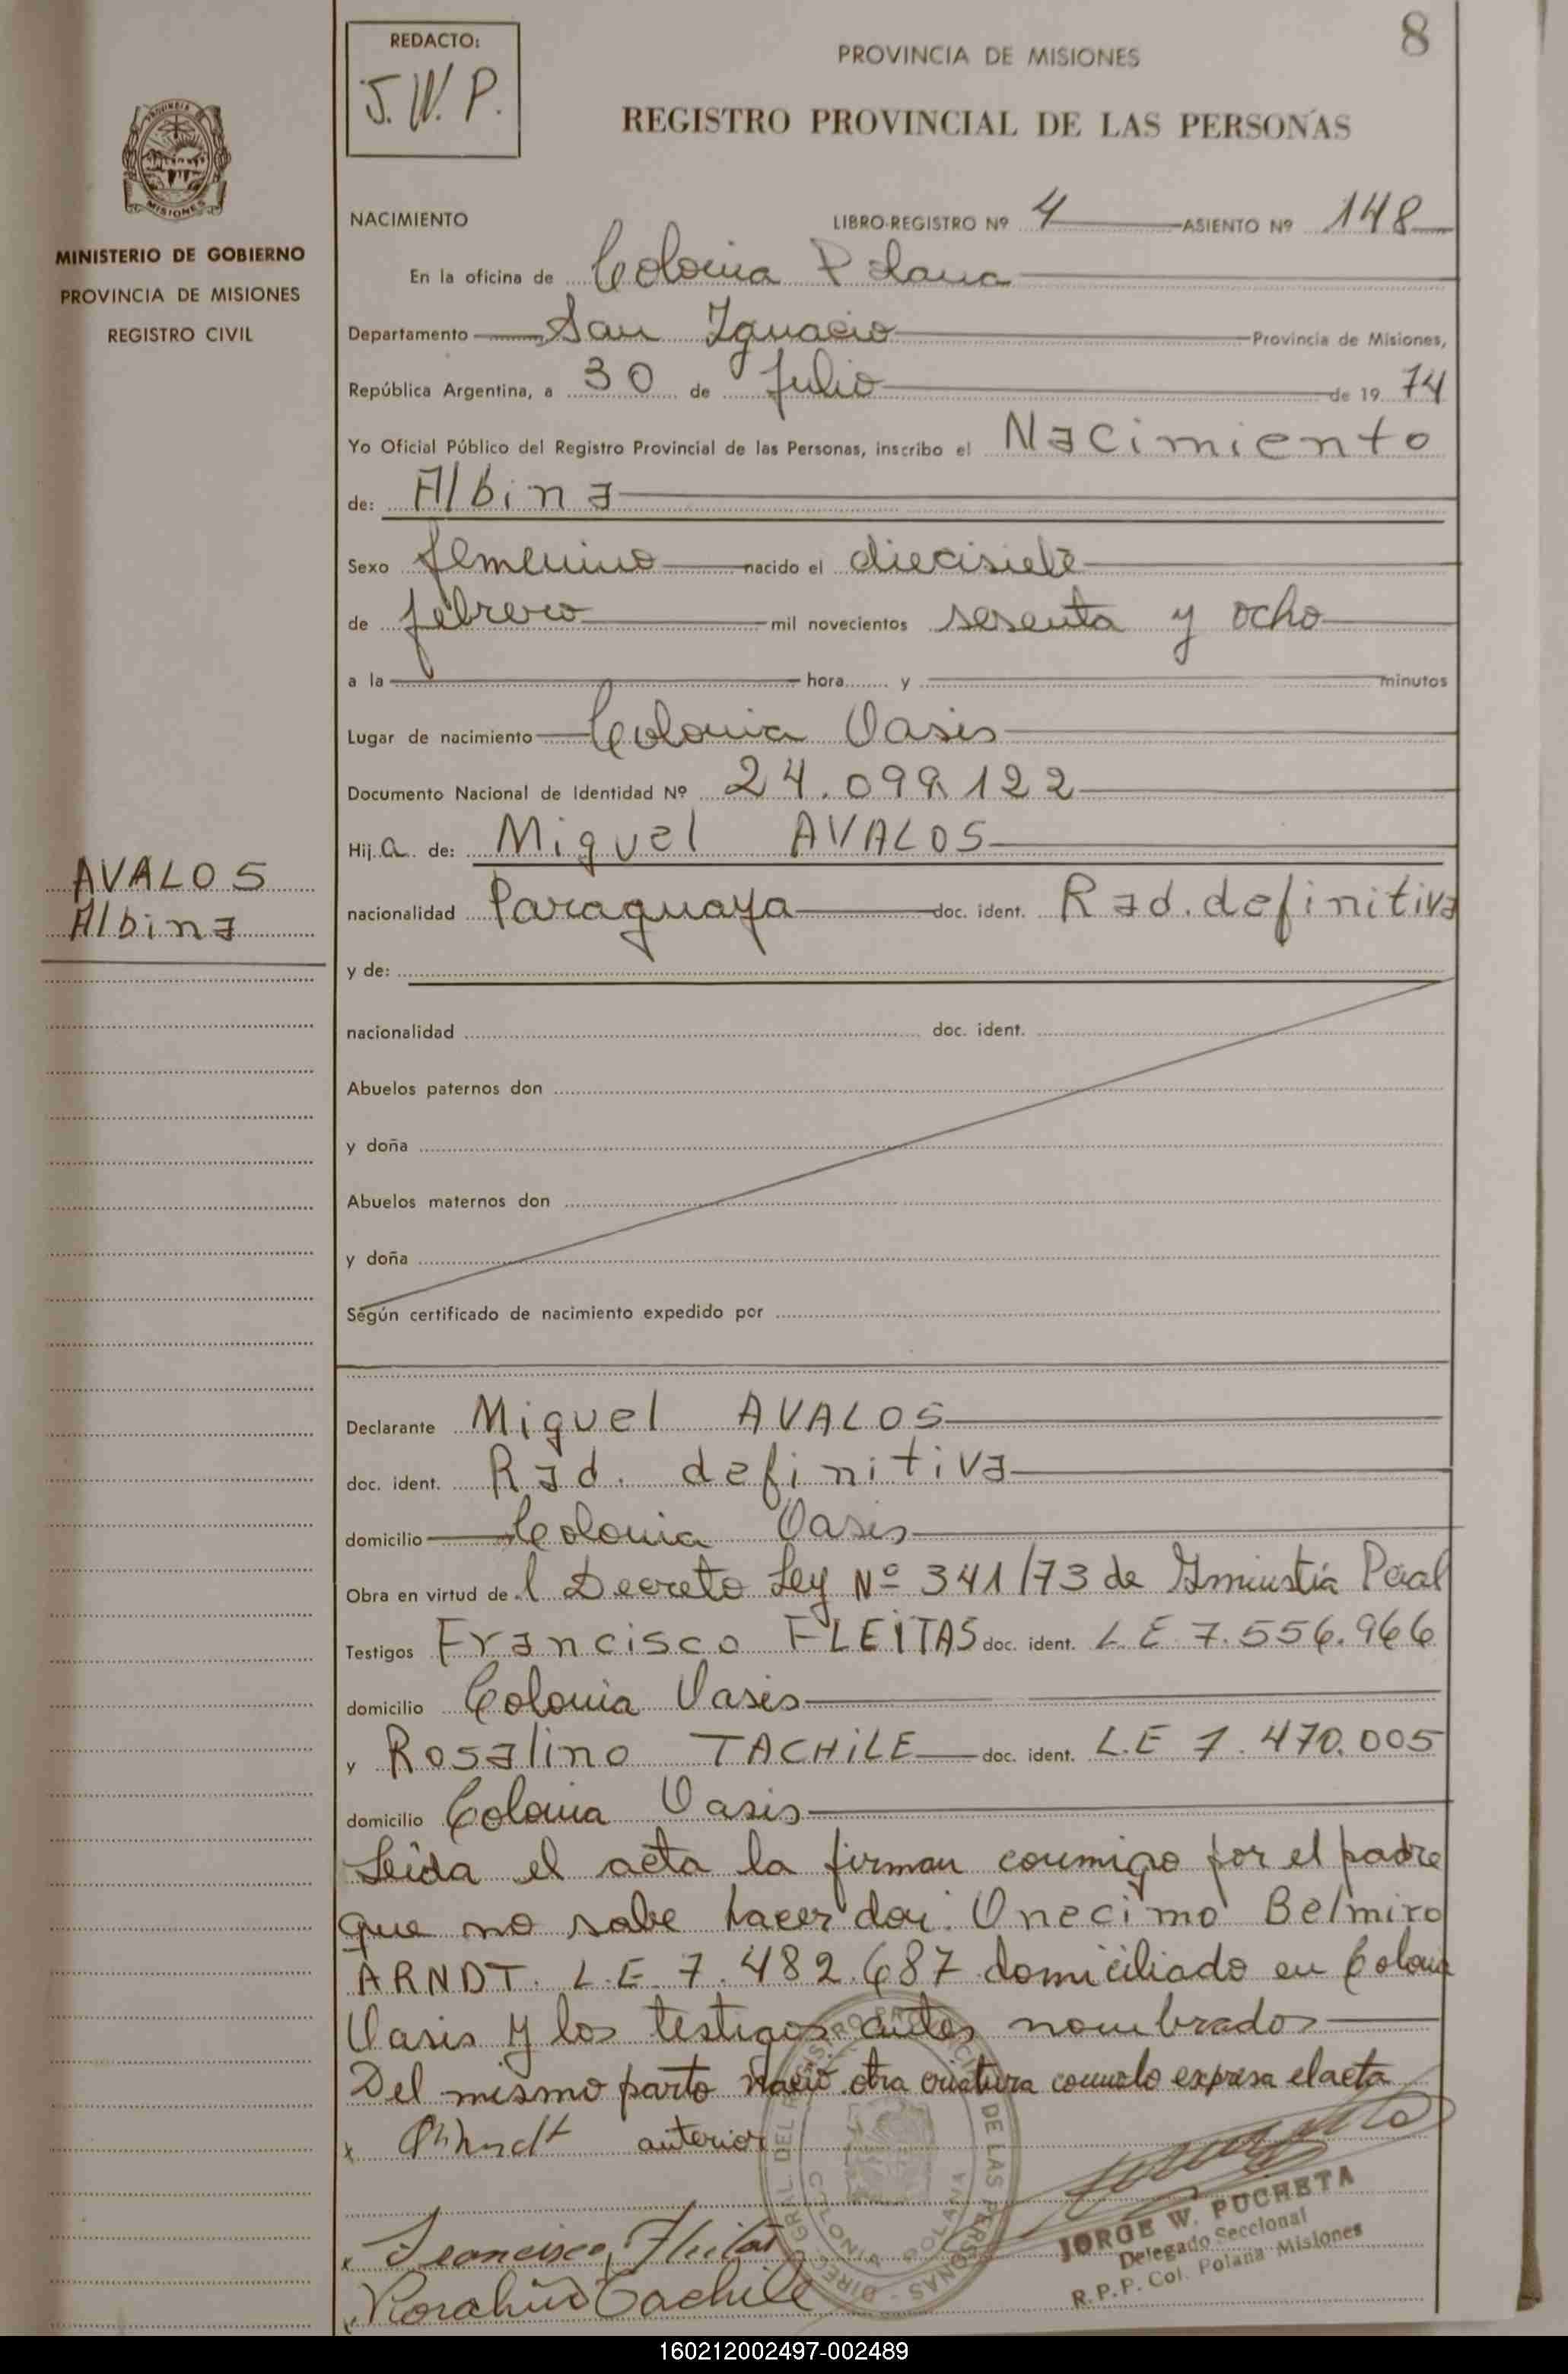 8
REDACTO:
J.W.P.
PROVINCIA DE MISIONES
REGISTRO PROVINCIAL DE LAS PERSONAS
MISIONES
MINISTERIO DE GOBIERNO
PROVINCIA DE MISIONES
REGISTRO CIVIL
NACIMIENTO LIBRO-REGISTRO Nº 4 ASIENTO Nº 148
En la oficina de Colonia Polana
Departamento San Ignacio Provincia de Misiones,
República Argentina, a 30 de Julio de 1974
Yo Oficial Público del Registro Provincial de las Personas, inscribo el Nacimiento
de: Albina
Sexo femenino nacido el diecisiete
de febrero mil novecientos sesenta y ocho
a la hora y minutos
Lugar de nacimiento Colonia Oasis
Documento Nacional de Identidad Nº 24.099.122
Hija de: Miguel AVALOS
AVALOS
Albina
nacionalidad Paraguaya doc. ident. Rad. definitiva
y de:
nacionalidad doc. ident.
Abuelos paternos don
y doña
Abuelos maternos don
y doña
Según certificado de nacimiento expedido por
Declarante Miguel AVALOS
doc. ident. Rad. definitiva
domicilio Colonia Oasis
Obra en virtud del Decreto Ley Nº 341/73 de
Testigos Francisco FLEITAS doc. ident. L.E 7.556.966
domicilio Colonia Oasis
y Rosalino TACHILE doc. ident. L.E 7.470.005
domicilio Colonia Oasis
Leída el acta la firman conmigo por el padre
que no sabe hacer don. Onecimo Belmiro
ARNDT. L.E. 7.482.687 domiciliado en Colonia
Oasis y los testigos antes nombrados
Del mismo parto nació otra criatura como lo expresa el acta
x Arndt anterior
x Francisco Fleitas
x Rosalino Tachile
DIREC. GRAL. DEL REGISTRO PROVINCIAL DE LAS PERSONAS
COLONIA POLANA
JORGE W. PUCHETA
Delegado Seccional
R.P.P. Col. Polana Misiones
160212002497-002489